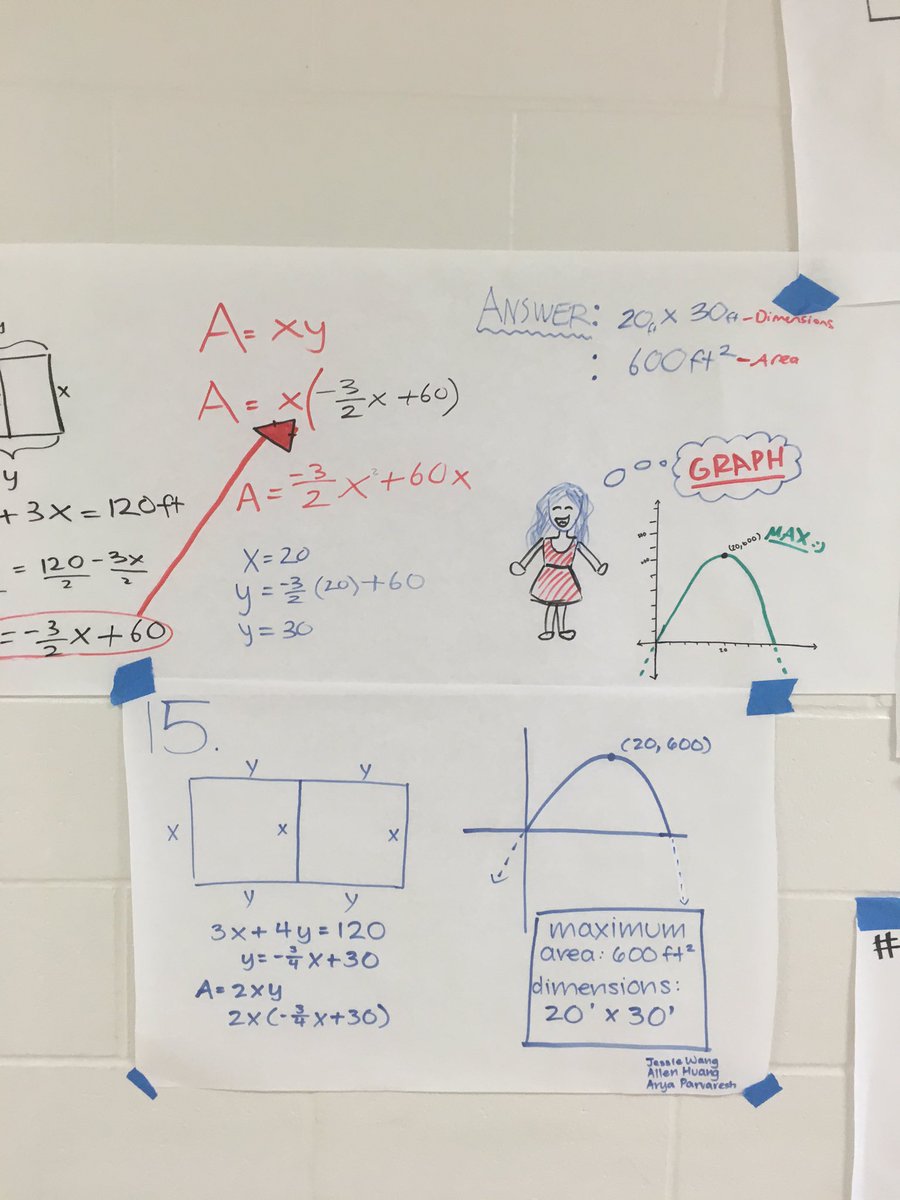 y
x
y
+ 3x = 120ft
= 120/2 - 3x/2
= -3/2 x + 60
A = xy
A = x(-3/2 x + 60)
A = -3/2 x² + 60x
x = 20
y = -3/2 (20) + 60
y = 30
ANSWER: 20ft x 30ft - Dimensions
: 600ft² - Area
GRAPH
(20,600) MAX :)
20
15.
y y
x x x
y y
3x + 4y = 120
y = -3/4 x + 30
A = 2xy
2x(-3/4 x + 30)
(20, 600)
maximum
area: 600 ft²
dimensions:
20' x 30'
Jessie Wang
Allen Huang
Arya Parvaresh
#